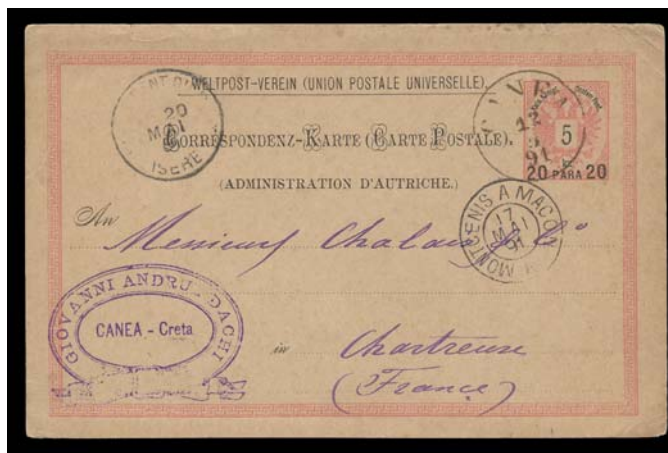 WELTPOST-VEREIN (UNION POSTALE UNIVERSELLE).
20
MAI
ISERE
CORRESPONDENZ-KARTE (CARTE POSTALE).
5
20 PARA 20
(ADMINISTRATION D'AUTRICHE.)
MONTCENIS A MACON
17
MAI
91
An Messieurs Chalas & Cº
GIOVANNI ANDRU DACHI
CANEA - Creta
in Chartreuse
(France)